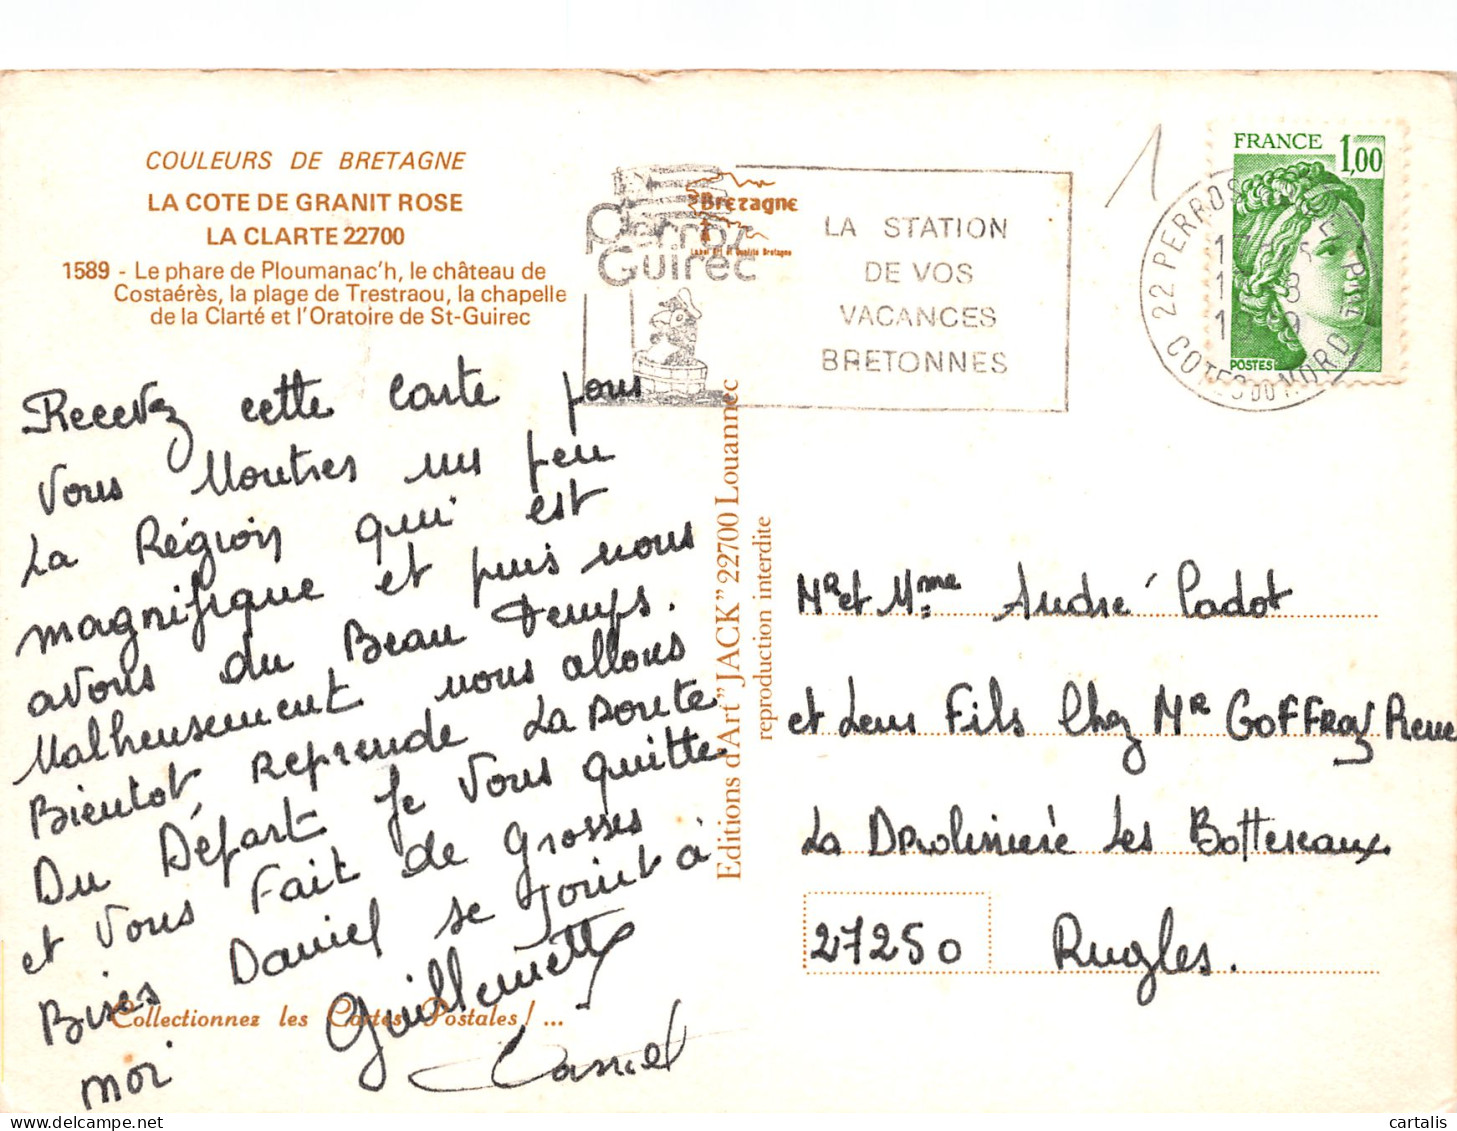 COULEURS DE BRETAGNE
LA COTE DE GRANIT ROSE
LA CLARTE 22700
1589 - Le phare de Ploumanac'h, le château de
Costaérès, la plage de Trestraou, la chapelle
de la Clarté et l'Oratoire de St-Guirec
Recevez cette carte pour
vous Montrer un peu
La Région qui est
magnifique et puis nous
avons du Beau temps.
Malheusement nous allons
Bientot Reprende La Doute
Du Départ Je vous quitte
et vous Fait de grosses
Bises Daniel se Joint à
moi Guillemette
Daniel
Collectionnez les Cartes Postales! ...
Perros
Guirec
Bretagne
Label Art et Qualité Bretagne
LA STATION
DE VOS
VACANCES
BRETONNES
FRANCE 1,00
POSTES
22 PERROS
COTES DU NORD
Editions d'Art "JACK" 22700 Louannec
reproduction interdite
Mr et Mme André Cadot
et Leur Fils Chez Mr Goffroy Pierre
La Les Bottereaux
27250 Rugles.
cartalis